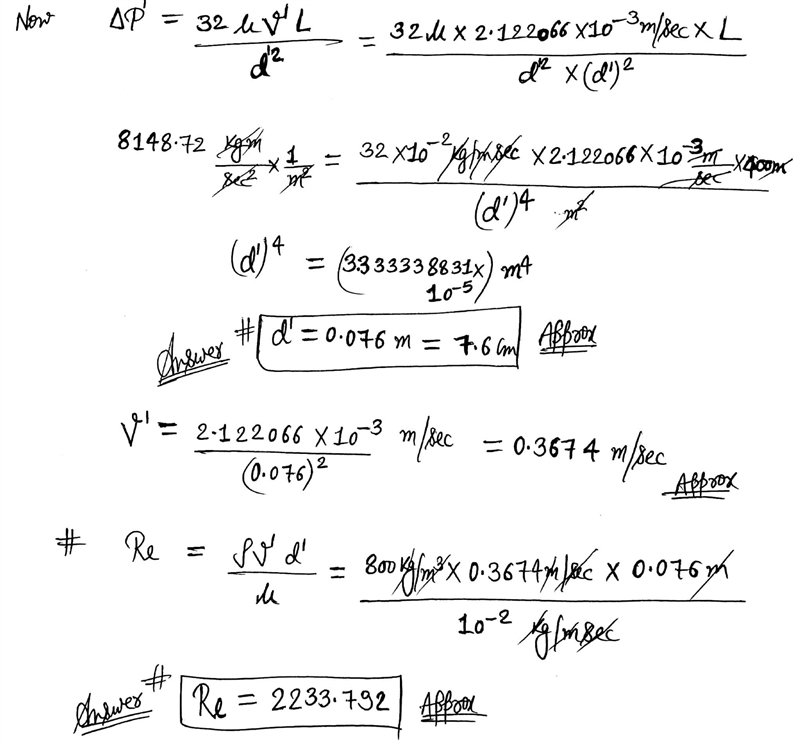 Now ΔP' = 32 μ V' L / d'² = 32 μ × 2.122066 × 10⁻³ m/sec × L / d'² × (d')²
8148.72 kgm/sec² × 1/m² = 32 × 10⁻² kg/m sec × 2.122066 × 10⁻³ m/sec × 400m / (d')⁴ m²
(d')⁴ = (3.3333338831 × 10⁻⁵) m⁴
Answer # d' = 0.076 m = 7.6 cm Approx
V' = 2.122066 × 10⁻³ / (0.076)² m/sec = 0.3674 m/sec Approx
# Re = ρV' d' / μ = 800 kg/m³ × 0.3674 m/sec × 0.076 m / 10⁻² kg/m sec
Answer # Re = 2233.792 Approx